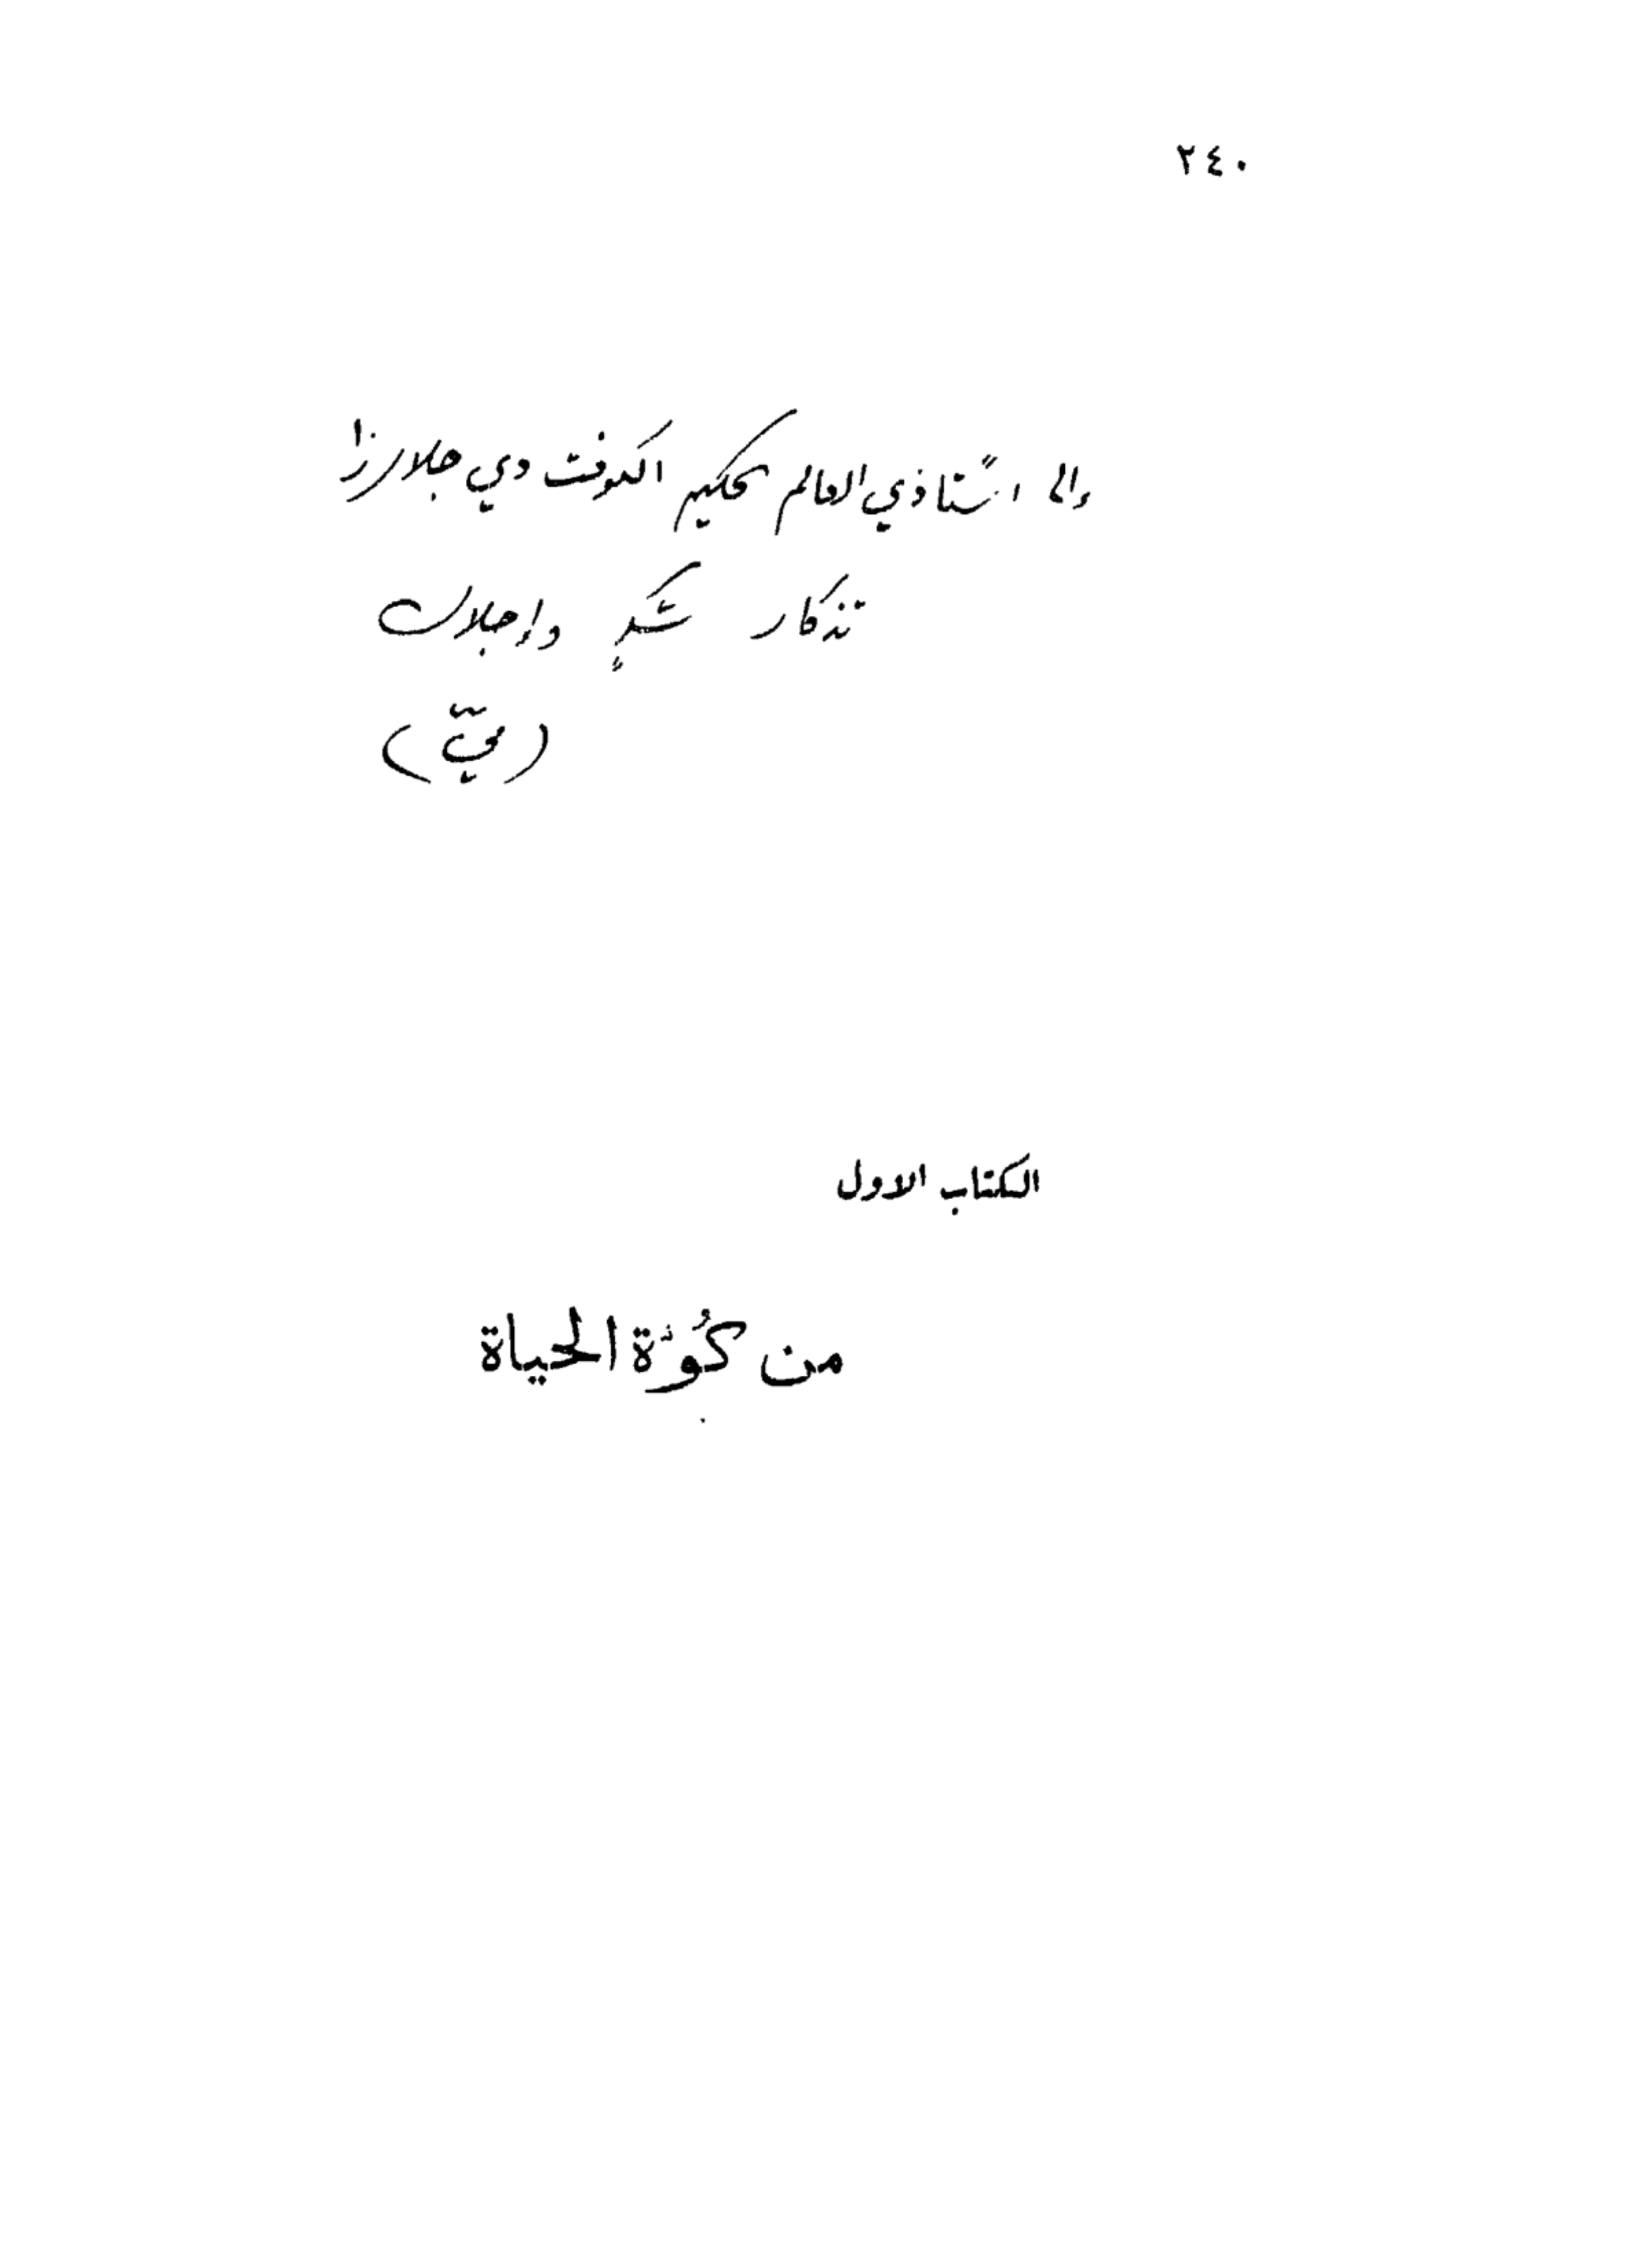 ٢٤٠
إلى أستاذي العالم الحكيم الكونت دي جلارزا
تذكار شكرٍ وإجلال
(ميّ)
الكتاب الاول
من كُوّة الحياة